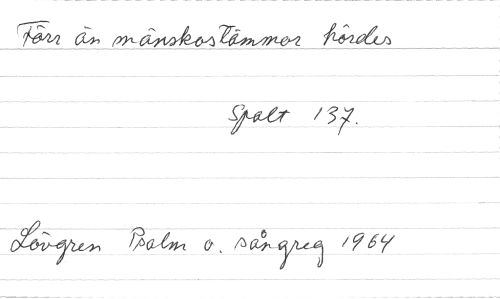 Förr än mänskostämmor hördes
Spalt 137.
Lövgren Psalm o. sångreg 1964